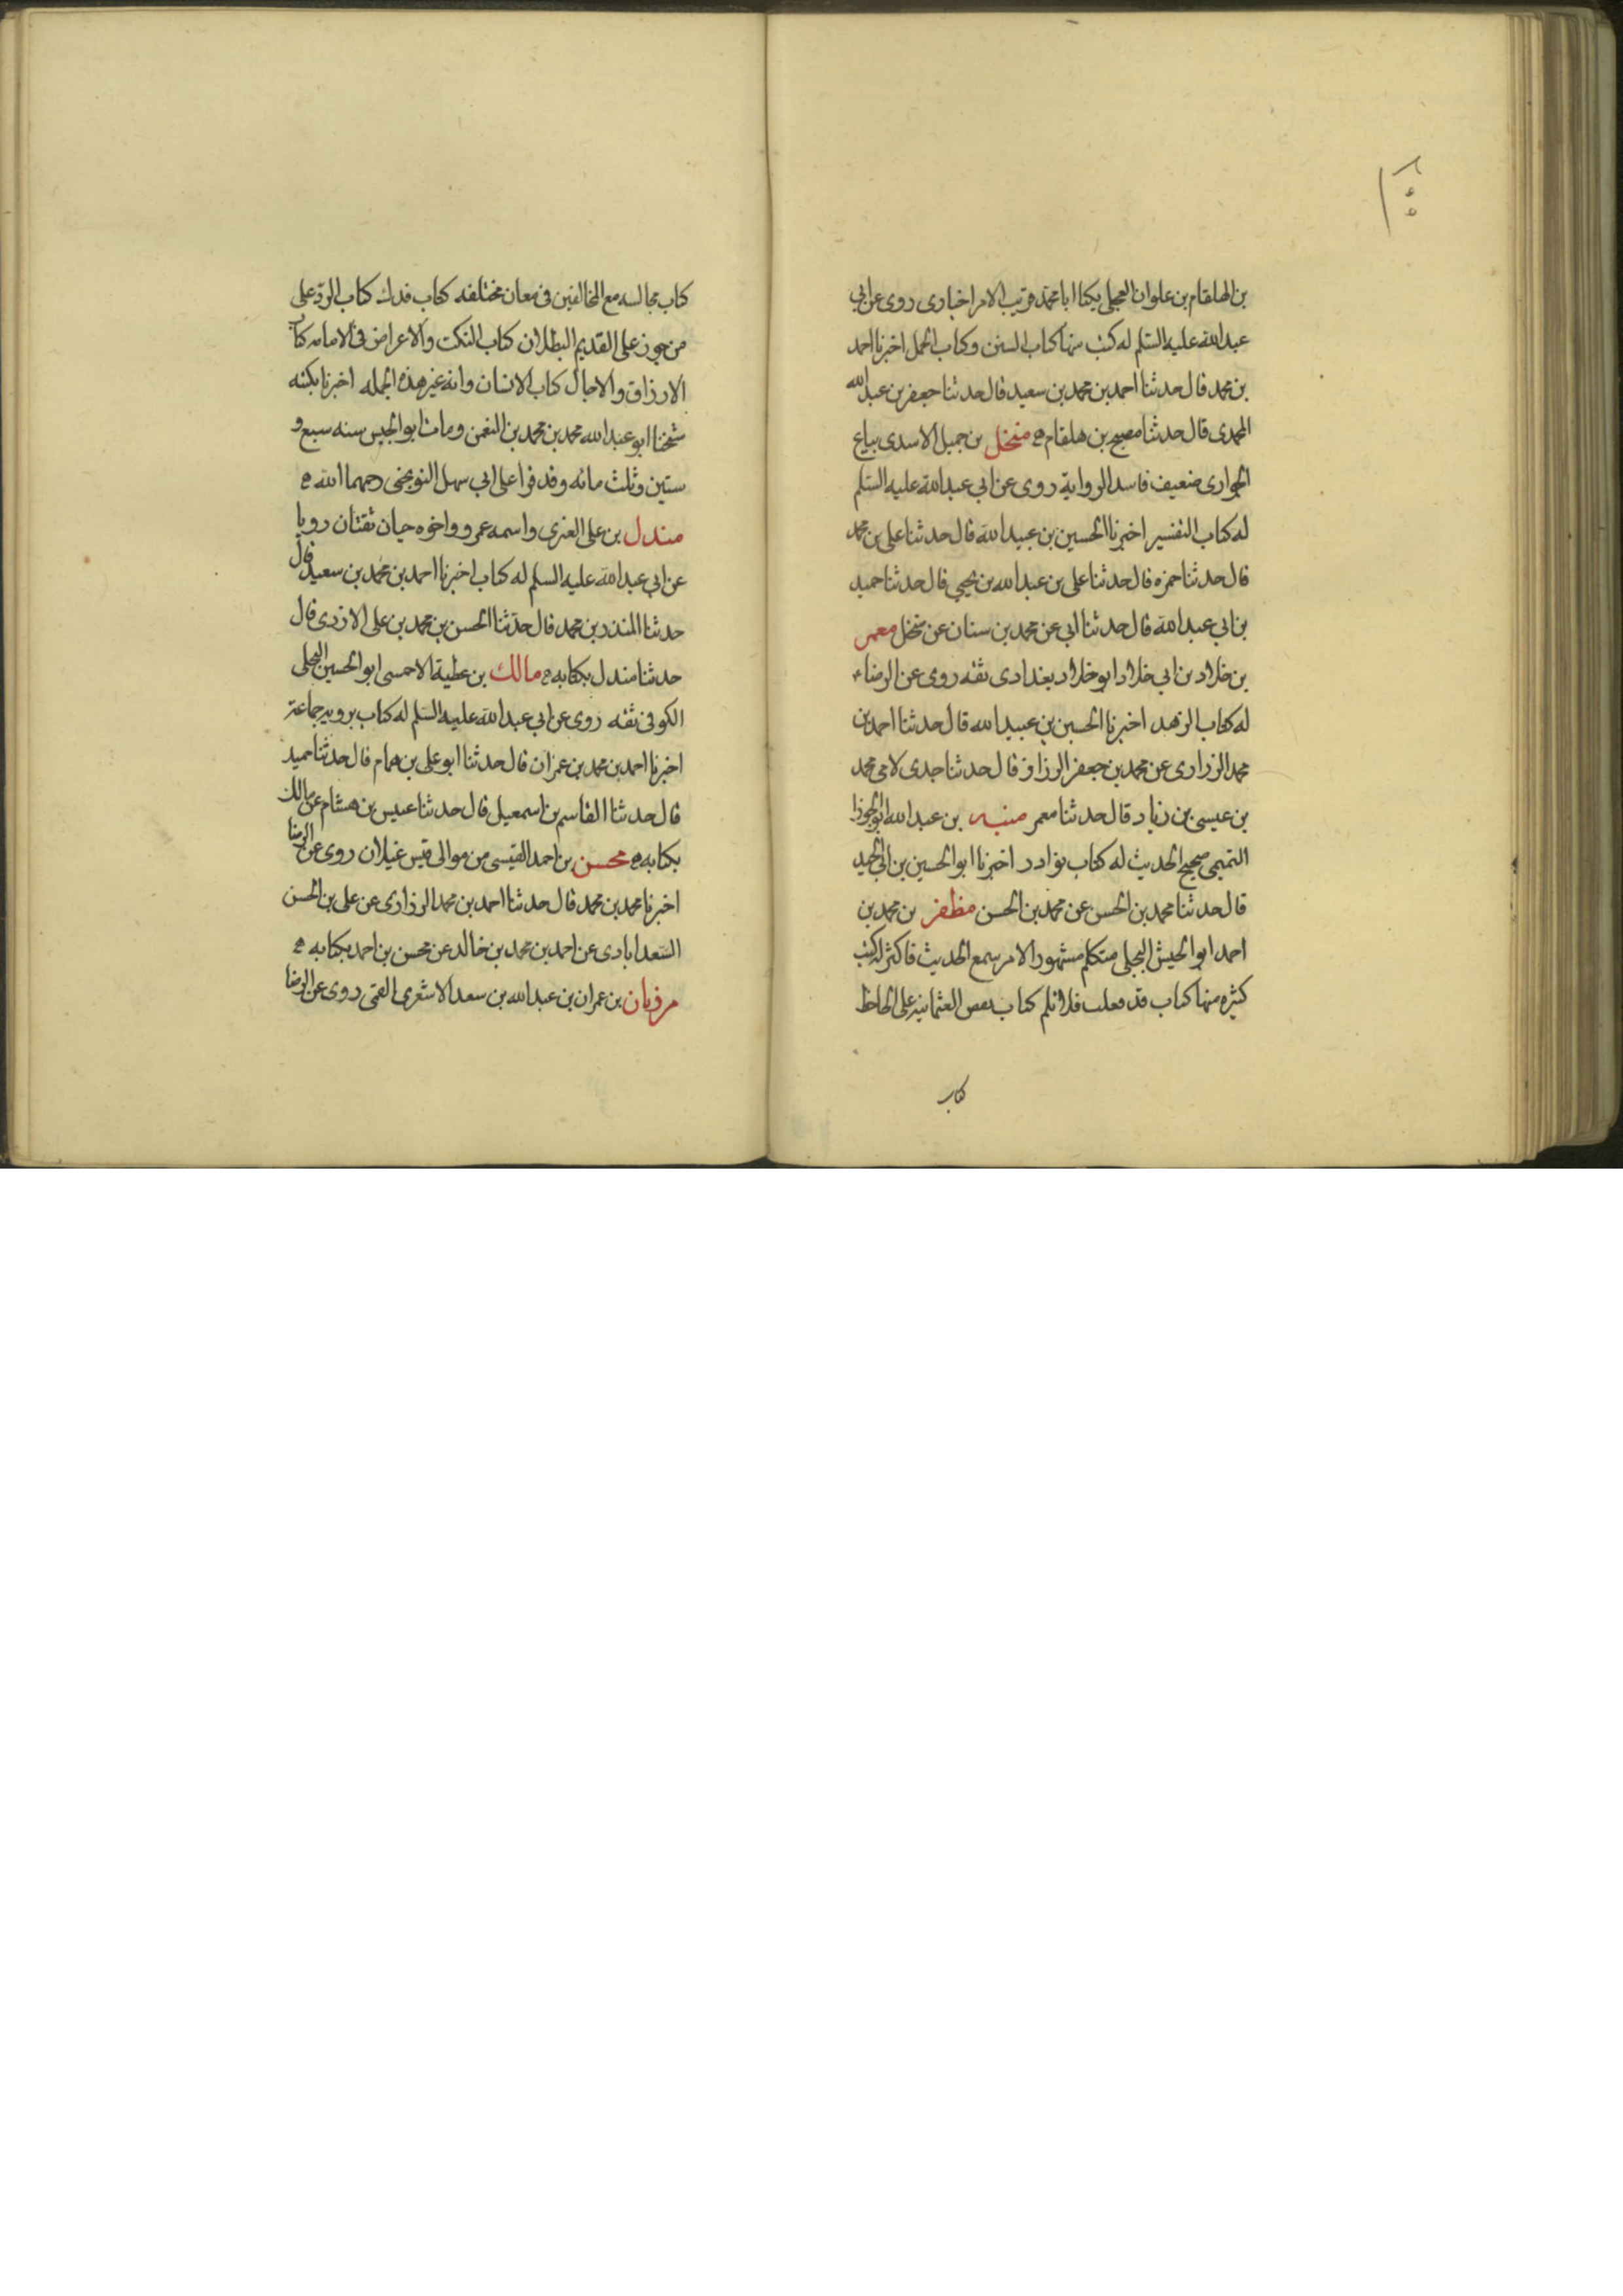 بن الهلقام بن علوان العجلی یکنا ابا محمد قریب الامر اخباری روی عن ابی
عبدالله علیه السّلم له کتب منها کتاب السنن وکتاب الجمل اخبرنا احمد
بن محمد قال حدثنا احمد بن محمد بن سعید قال حدثنا جعفر بن عبدالله
المحمدی قال حدثنا مصبح بن هلقام ه منخل بن جمیل الاسدی بیاع
الجواری ضعیف فاسد الروایة روی عن ابی عبدالله علیه السّلم
له کتاب التفسیر اخبرنا الحسین بن عبیدالله قال حدثنا علی بن محمد
قال حدثنا حمزه قال حدثنا علی بن عبدالله بن یحیی قال حدثنا حمید
بن ابی عبدالله قال حدثنا ابی عن محمد بن سنان عن منخل معمر
بن خلاد بن ابی خلاد ابو خلاد بغدادی ثقه روی عن الرضاء
له کتاب الزهد اخبرنا الحسین بن عبیدالله قال حدثنا احمد بن
محمد الزراری عن محمد بن جعفر الرزاز قال حدثنا جدی لامی محمد
بن عیسی بن زیاد قال حدثنا معمر منبه بن عبدالله ابو الجوزا
التمیمی صحیح الحدیث له کتاب نوادر اخبرنا ابو الحسین بن ابی الجید
قال حدثنا محمد بن الحسن عن محمد بن الحسن مظفر بن محمد بن
احمد ابو الجیش البجلی متکلم مشهور الامر سمع الحدیث فاکثر له کتب
کثیره منها کتاب قد فعلت فلا تلم کتاب نقض العثمانیه علی الجاحظ
کتاب
کتاب مجالسه مع المخالفین فی معان مختلفه کتاب فدك کتاب الردّ علی
من جوز علی القدیم البطلان کتاب النکت والاعراض فی الامامه کتاب
الارزاق والاجال کتاب الانسان وانه غیر هذه الجمله اخبرنا بکتبه
شیخنا ابو عبدالله محمد بن محمد بن النعمن ومات ابو الجیس سنه سبع و
ستین وثلث مائه وقد قرا علی ابی سهل النوبختی رحمهما الله ه
مندل بن علی العنزی واسمه عمرو واخوه حیان ثقتان رویا
عن ابی عبدالله علیه السلم له کتاب اخبرنا احمد بن محمد بن سعید قال
حدثنا المنذر بن محمد قال حدّثنا الحسن بن محمد بن علی الازدی قال
حدثنا مندل بکتابه ه مالك بن عطیة الاحمسی ابو الحسین البجلی
الکوفی ثقه روی عن ابی عبدالله علیه السّلم له کتاب یرویه جماعة
اخبرنا احمد بن محمد بن عمران قال حدثنا ابو علی بن همام قال حدثنا حمید
قال حدثنا القاسم بن اسمعیل قال حدثنا عبیس بن هشام عن مالك
بکتابه ه محسن بن احمد القیسی من موالی قیس غیلان روی عن الرضا
اخبرنا محمد بن محمد قال حدثنا احمد بن محمد الزراری عن علی بن الحسن
السّعدابادی عن احمد بن محمد بن خالد عن محسن بن احمد بکتابه ه
مرزبان بن عمران بن عبدالله بن سعد الاشعری القمّی روی عن الرضا